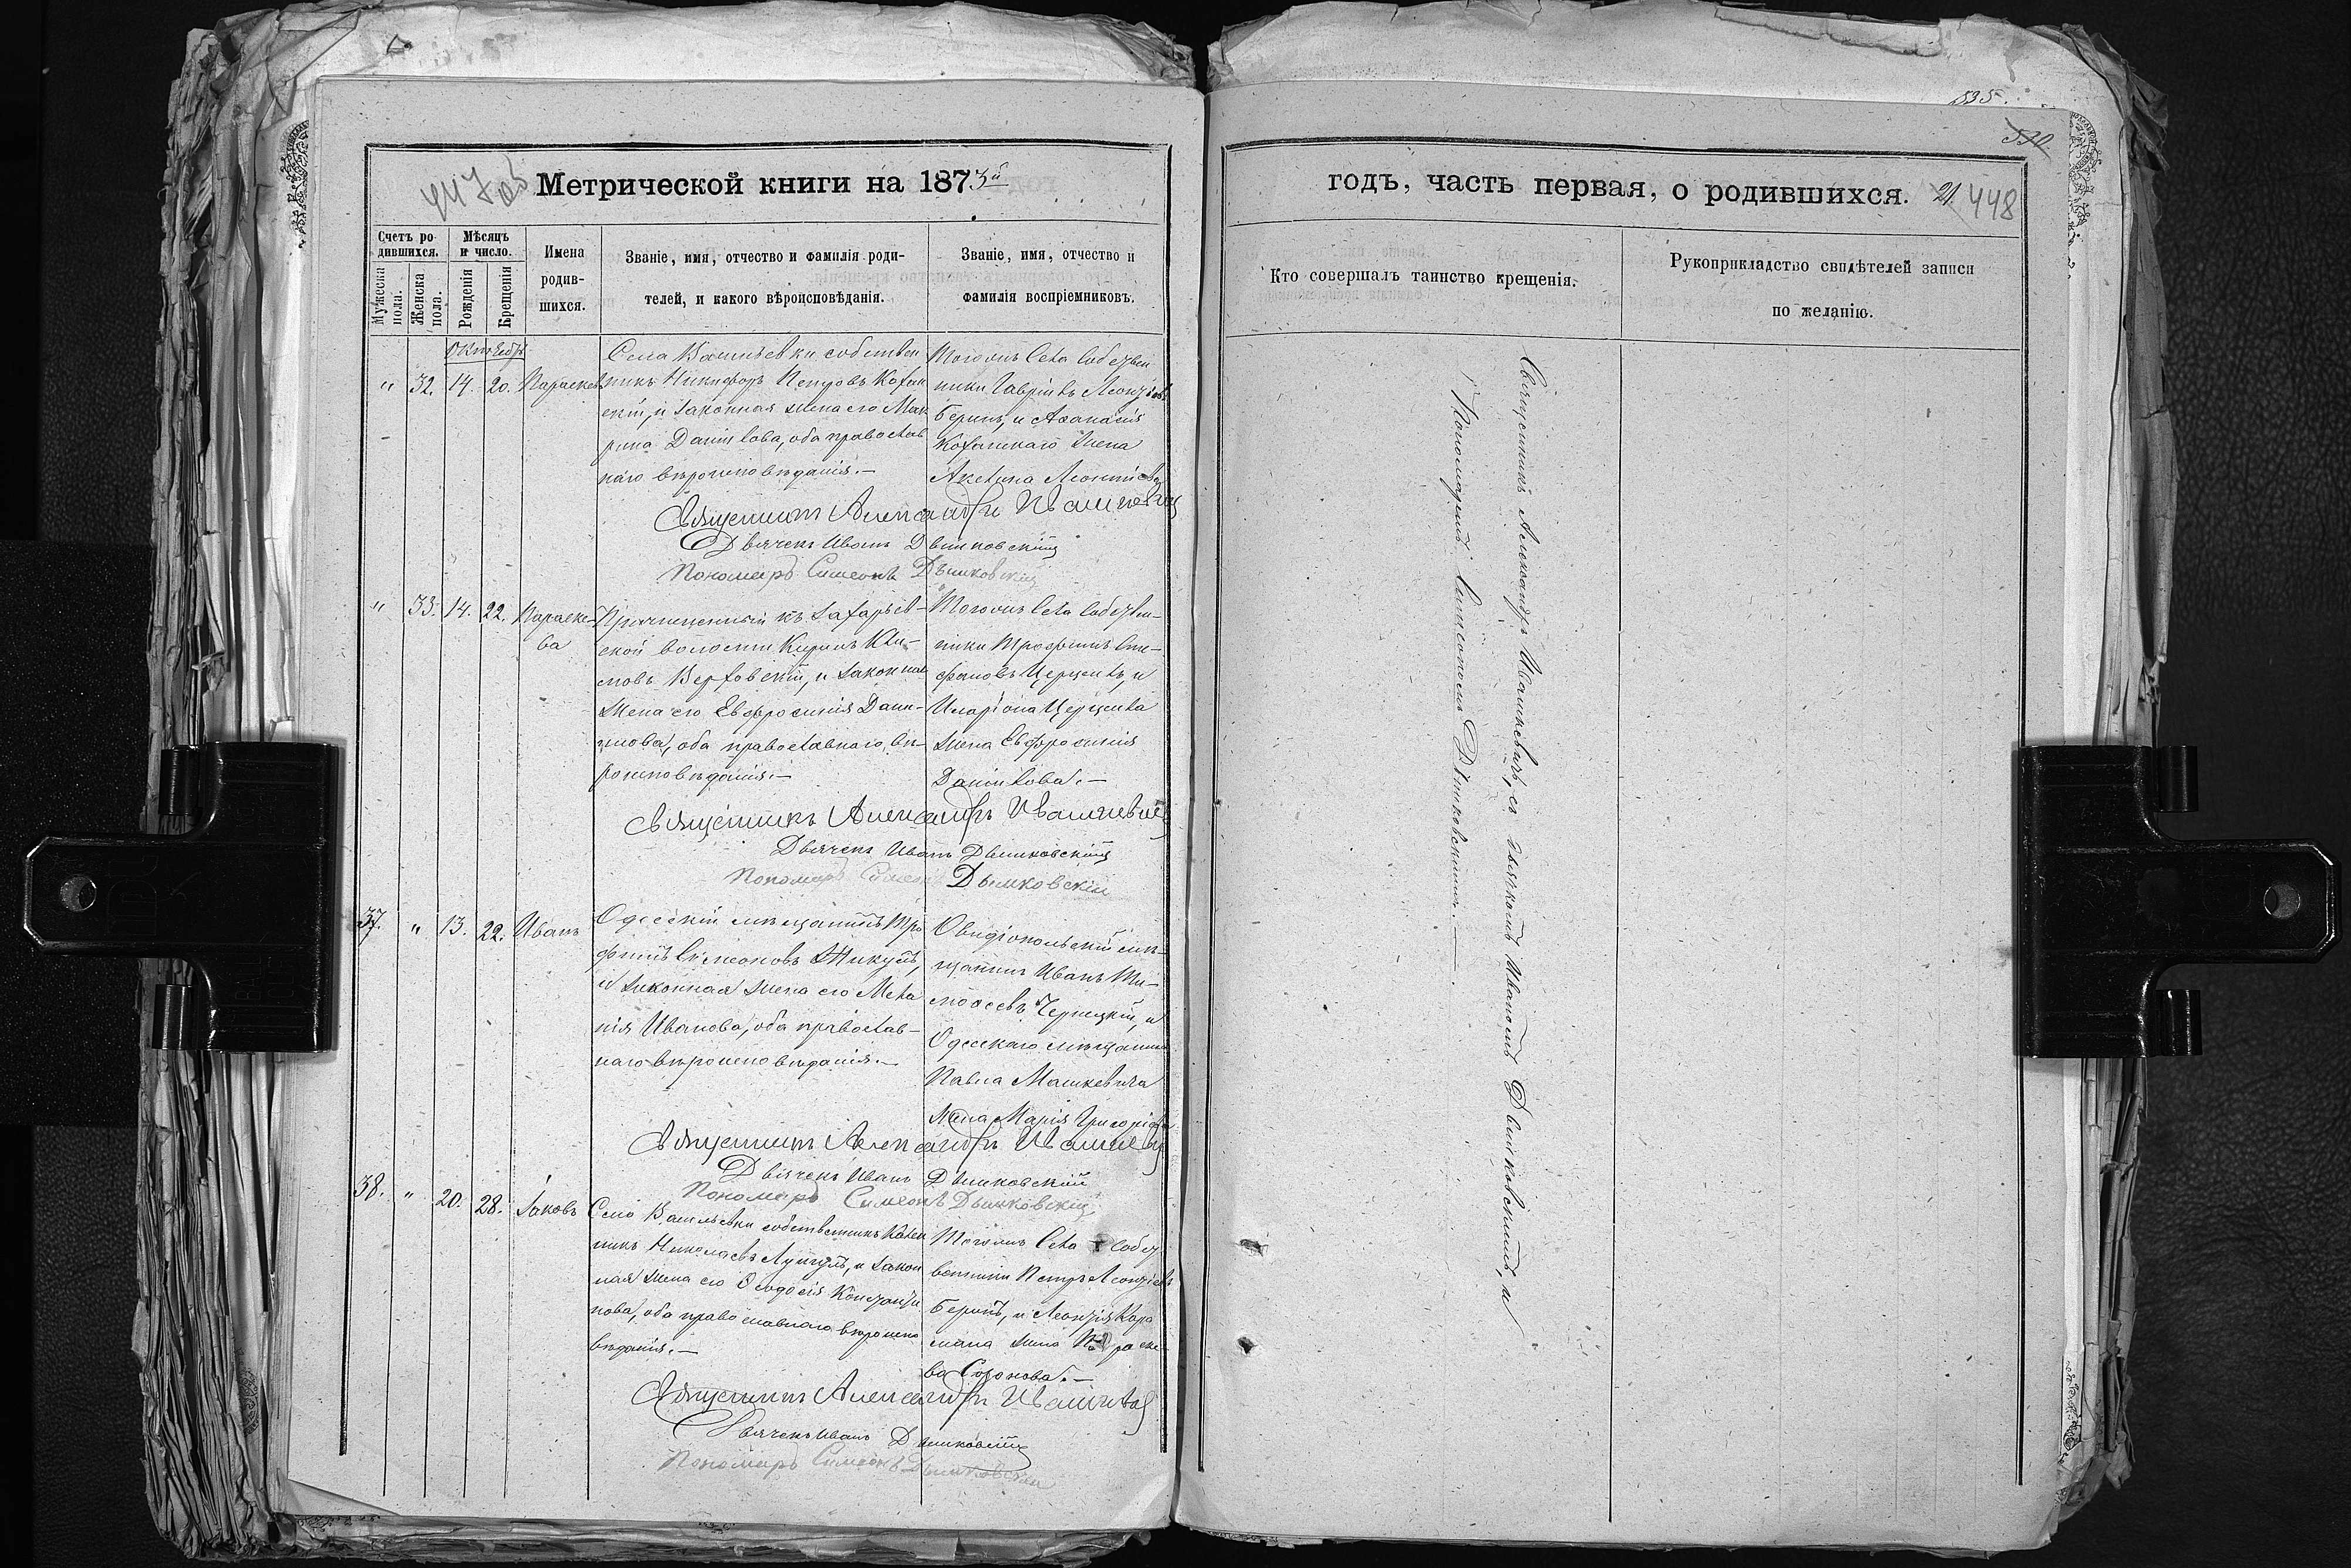 535.
530.
447 об
Метрической книги на 1873й
годъ, часть первая, о родившихся. 21. 448
Счетъ ро-
дившихся.
Мужеска
пола.
Женска
пола.
Мѣсяцъ
и число.
Рожденія
Крещенія
Имена
родив-
шихся.
Званіе, имя, отчество и фамилія роди-
телей, и какого вѣроисповѣданія.
Званіе, имя, отчество и
фамилія воспріемниковъ.
Кто совершалъ таинство крещенія.
Рукоприкладство свидѣтелей записи
по желанію.
Октябрь
" 32. 14. 20. Параскева
Села Васильевки собствен
никъ Никифоръ Петровъ Кохан
скій, и законная жена его Мак
рина Данилова, оба православ
наго вѣроисповѣданія.—
Тогожъ села собствен
ники Гавріилъ Леонтіевъ
Беринъ, и Аѳанасія
Коханскаго жена
Акелина Леонтіева
Священникъ Александръ Ивашкевичъ
Дьячекъ Иванъ Дымковскій
Пономарь Симеонъ Дымковскій
" 33. 14. 22. Параске-
ва
Причисленный къ Захарьев-
ской волости Кирилъ Кли-
мовъ Верховскій, и законная
жена его Евфросинія Дани-
илова, оба православнаго вѣ-
роисповѣданія.—
Тогожъ села собствен-
ники Трофимъ Сте-
фановъ Церценъ, и
Иларіона Церцена
жена Евфросинія
Данилова.—
Священникъ Александръ Ивашкевичъ
Дьячекъ Иванъ Дымковскій
Пономарь Симеонъ Дымковскій
37. " 13. 22. Иванъ
Одесскій мѣщанинъ Тро
фимъ Симеоновъ Жикулъ,
и законная жена его Мела
нія Иванова, оба православ-
наго вѣроисповѣданія.—
Овидіопольскій мѣ-
щанинъ Иванъ Ти-
моѳеевъ Чернецкій, и
Одесскаго мѣщанина
Павла Машкевича
жена Марія Григоріева
Священникъ Александръ Ивашкевичъ
Дьячекъ Иванъ Дымковскій
Пономарь Симеонъ Дымковскій
38. " 20. 28. Іаковъ
Село Васильевки собственникъ Кален
никъ Николаевъ Лунгулъ, и закон
ная жена его Ѳеодосія Константи
нова, оба православнаго вѣроиспо
вѣданія.—
Тогожъ села собст
венники Петръ Леонтіевъ
Беринъ, и Леонтія Кара
мана жена Параске-
ва Созонова.—
Священникъ Александръ Ивашкевичъ
Дьячекъ Иванъ Дымковскій
Пономарь Симеонъ Дымковскій
Священникъ Александръ Ивашкевичъ, съ дьячкомъ Иваномъ Дымковскимъ, и
Пономаремъ Симеономъ Дымковскимъ.—